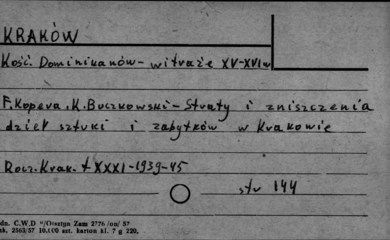 KRAKÓW
Kość. Dominikanów - witraże XV-XVI w
F. Kopera, K. Buczkowski - Straty i zniszczenia
dzieł sztuki i zabytków w Krakowie
Rocz. Krak. t XXXI - 1939-45
str 144
dn. C.W.D Olsztyn Zam 2776 /on/ 57
zk. 2563/57 10.000 szt. karton kl. 7 g 220.